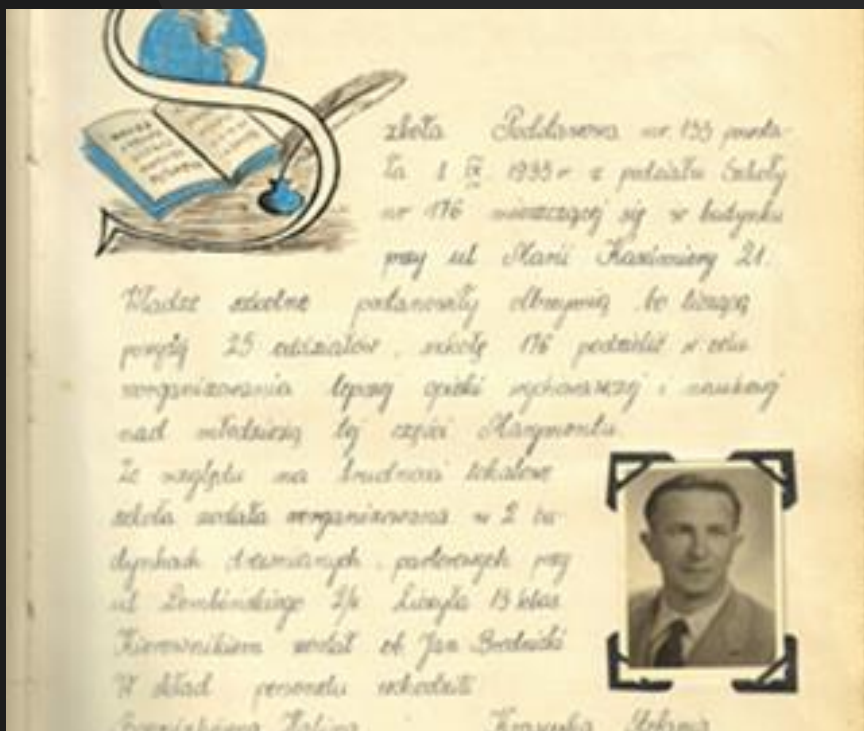 Szkoła Podstawowa nr 155 powsta-
ła 1 IX 1955 r z podziału Szkoły
nr 176 mieszczącej się w budynku
przy ul Marii Kazimiery 21.
Władze szkolne postanowiły olbrzymią, bo liczącą
powyżej 25 oddziałów, szkołę 176 podzielić w celu
zorganizowania lepszej opieki wychowawczej i naukowej
nad młodzieżą tej części Marymontu.
Ze względu na trudności lokalowe
szkoła została zorganizowana w 2 bu-
dynkach drewnianych, parterowych przy
ul Dembińskiego Liczyła 13 klas
Kierownikiem został ob. Jan Brodnicki
W skład personelu wchodzili
Halina Krasuska Stefania